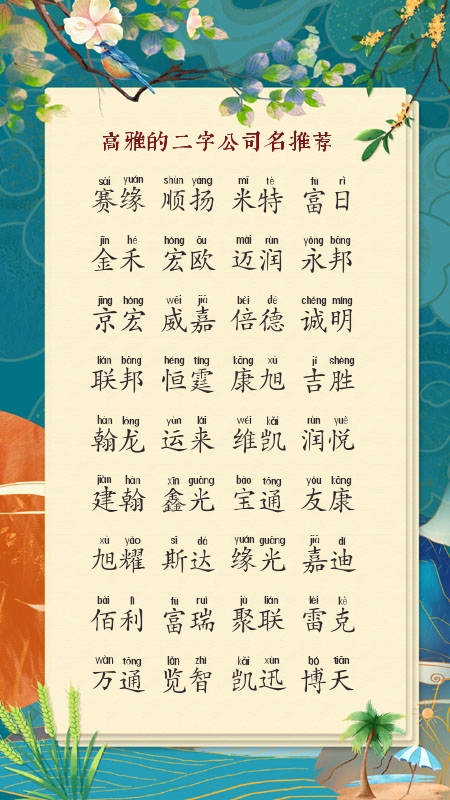 高雅的二字公司名推荐
sài yuán shùn yáng mǐ tè fù rì
赛缘 顺扬 米特 富日
jīn hé hóng ōu mài rùn yǒng bāng
金禾 宏欧 迈润 永邦
jīng hóng wēi jiā bèi dé chéng míng
京宏 威嘉 倍德 诚明
lián bāng héng tíng kāng xù jí shèng
联邦 恒霆 康旭 吉胜
hàn lóng yùn lái wéi kǎi rùn yuè
翰龙 运来 维凯 润悦
jiàn hàn xīn guāng bǎo tōng yǒu kāng
建翰 鑫光 宝通 友康
xù yào sī dá yuán guāng jiā dí
旭耀 斯达 缘光 嘉迪
bǎi lì fù ruì jù lián léi kè
佰利 富瑞 聚联 雷克
wàn tōng lǎn zhì kǎi xùn bó tiān
万通 览智 凯迅 博天